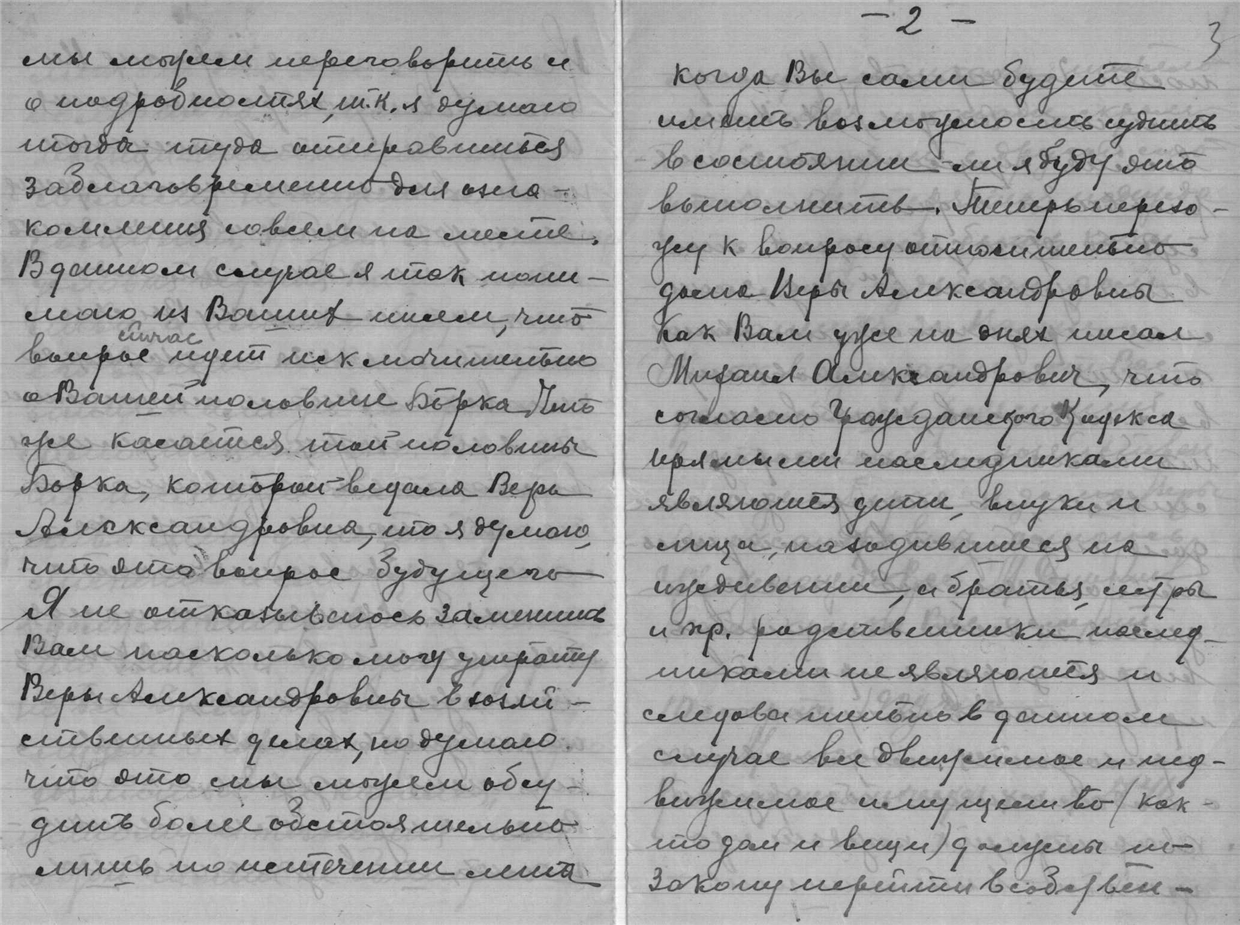 мы можем переговорить и
о подробностях, т.к. я думаю
тогда туда отправиться
заблаговременно для озна-
комления совсем на месте.
В данном случае я так пони-
маю из Ваших писем, что
сичас
вопрос идет исключительно
о Вашей половине Борка. Что
же касается той половины
Борка, которой ведала Вера
Александровна, то я думаю,
что это вопрос будущего
Я не отказываюсь заменить
Вам насколько могу утрату
Веры Александровны в хозяй-
ственных делах, но думаю
что это мы можем обсу-
дить более обстоятельно
лишь по истечении лета
- 2 -
3
когда Вы сами будете
иметь возможность судить
в состоянии-ли я буду это
выполнить. Теперь перехо-
жу к вопросу относительно
дома Веры Александровны
Как Вам уже на днях писал
Михаил Александрович, что
согласно Гражданского Кодекса
прямыми наследниками
являются дети, внуки и
лица, находившиеся на
иждивении, а братья, сестры
и пр. родственники наслед-
никами не являются и
следовательно в данном
случае все движимое и нед-
вижимое имущество (как-
то дом и вещи) должны по
закону перейти в собствен-